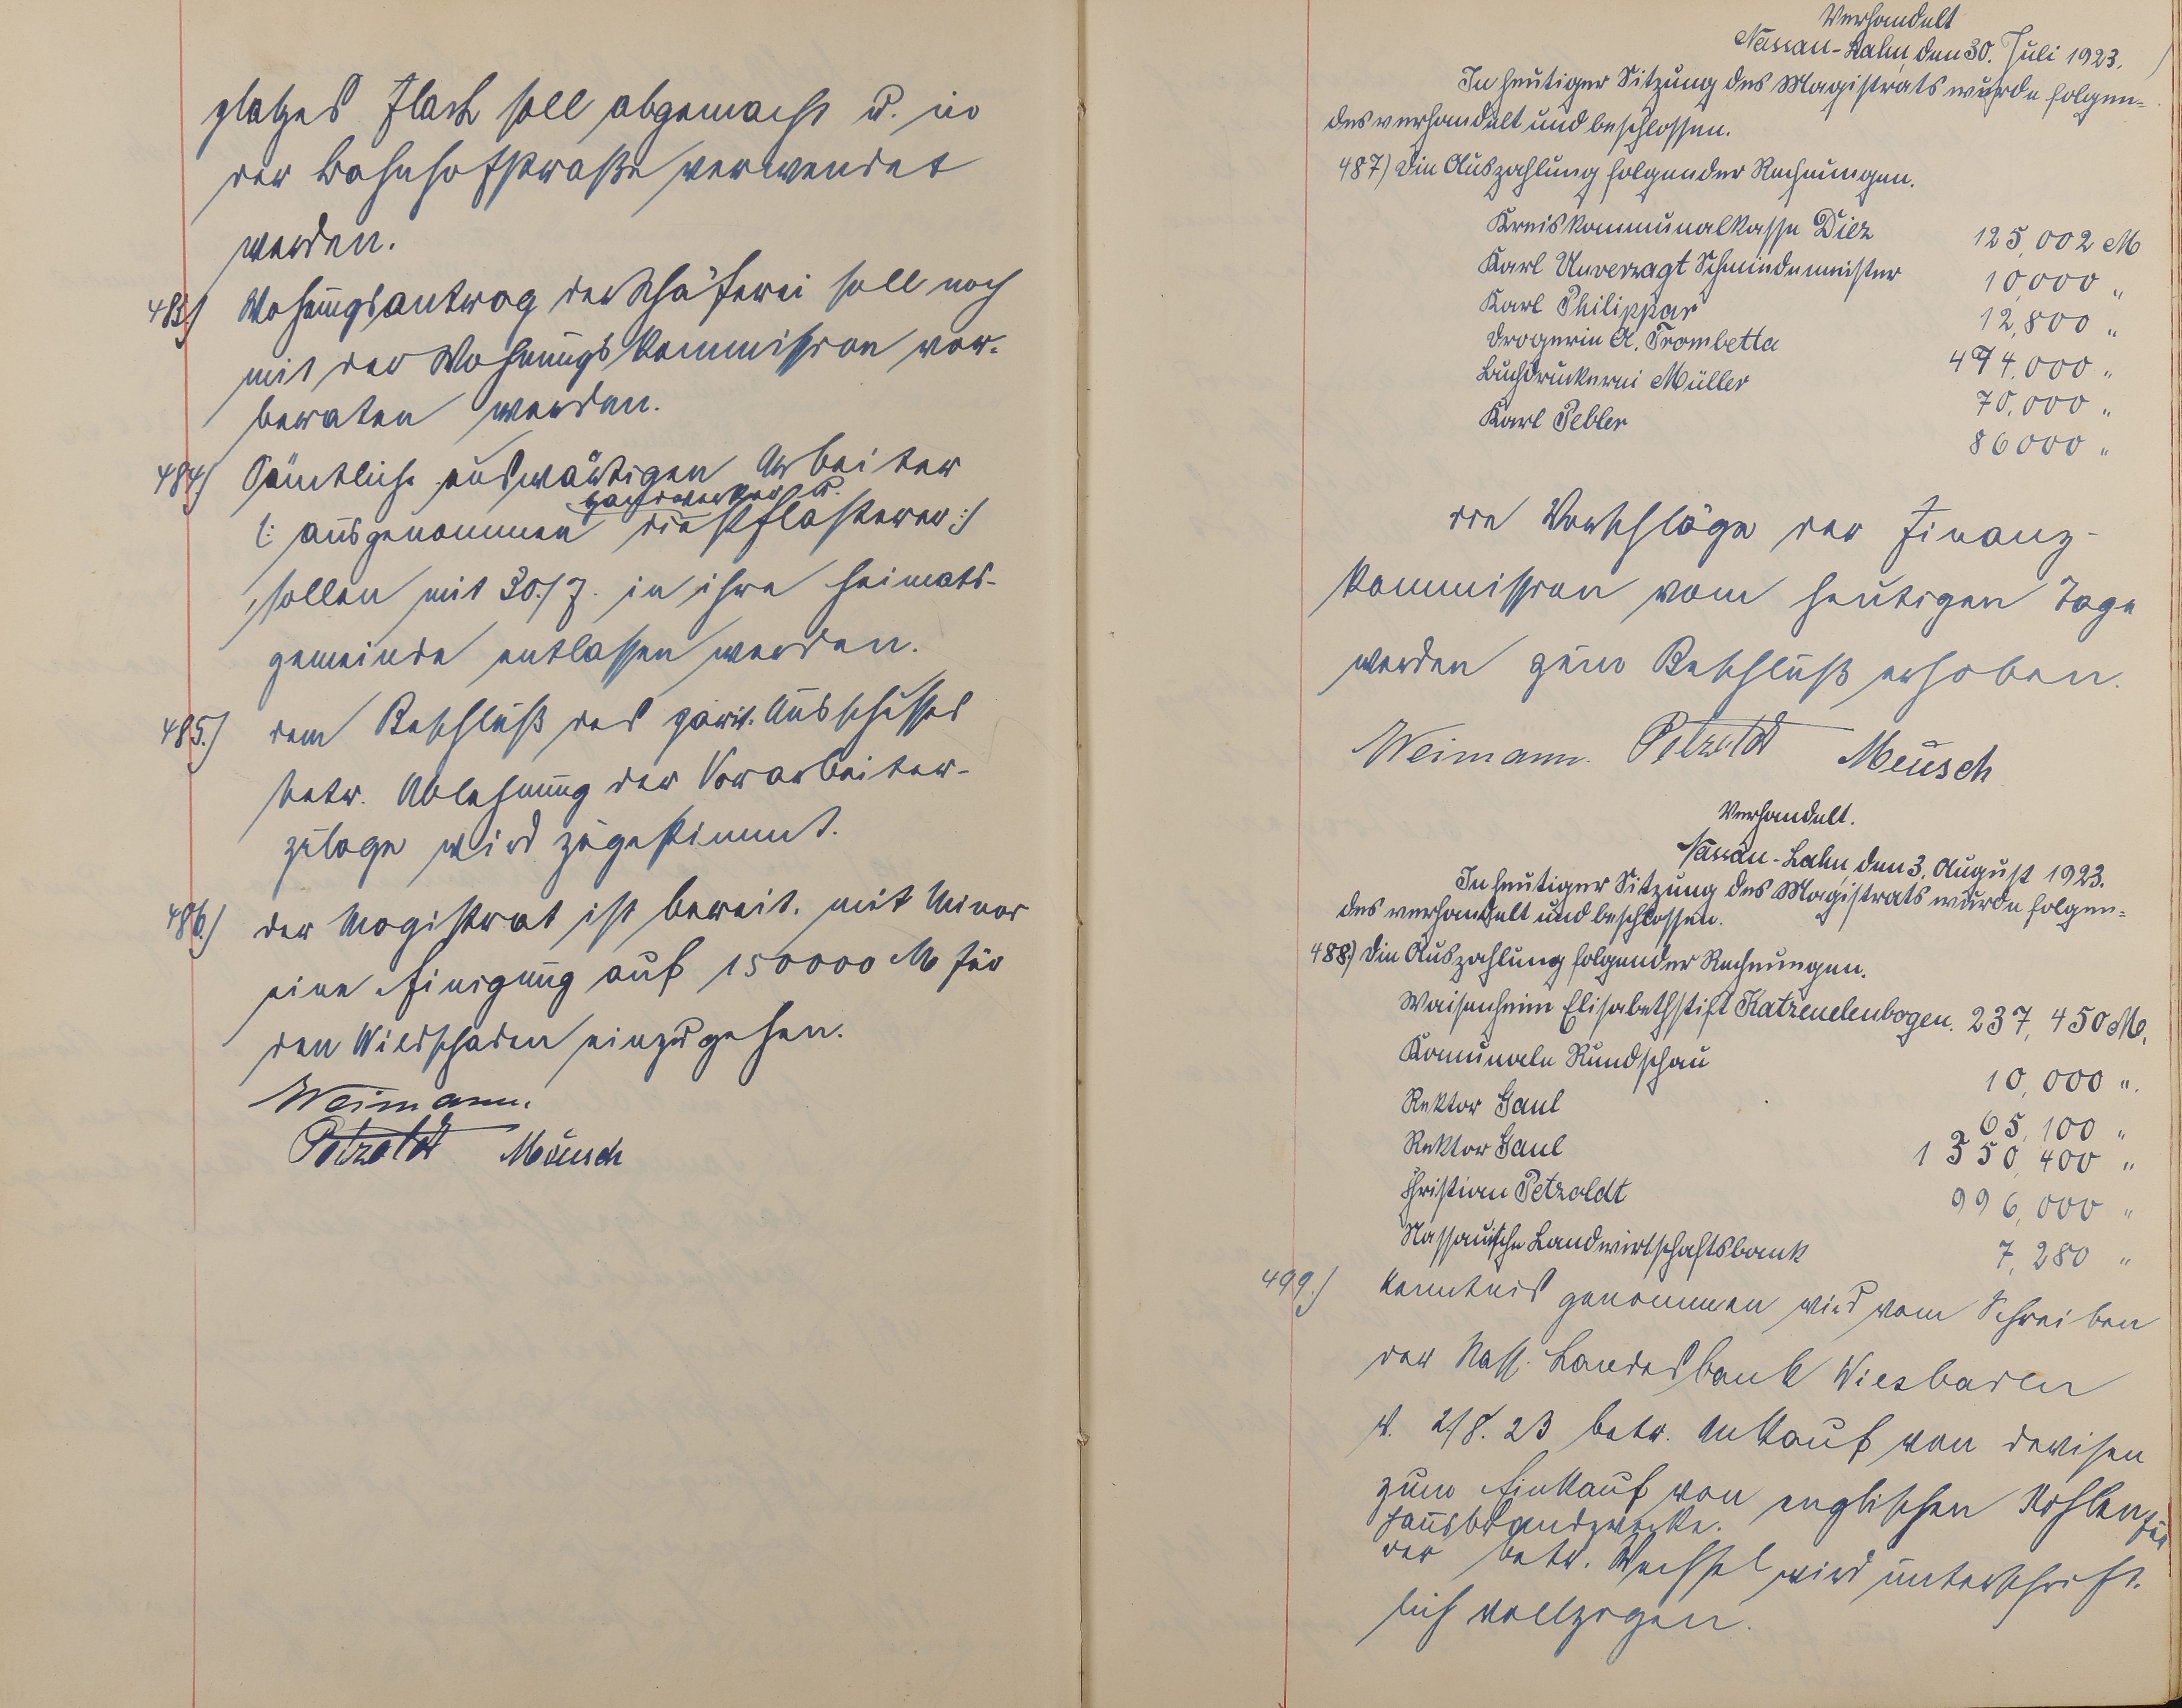 platzes Flach soll abgemacht u. in
der Bahnhofstraße verwendet
werden.
483.) Wohnungsantrag der Schäferei soll noch
mit der Wohnungskommission vor-
beraten werden.
484.) Sämtliche auswärtigen Arbeiter
Handwerker u.
(: ausgenommen die Pflasterer :)
sollen mit 30./7. in ihre Heimats-
gemeinde entlassen werden.
485.) dem Beschluß des parit. Ausschusses
betr. Ablehnung der Vorarbeiter-
zulage wird zugestimmt.
486.) der Magistrat ist bereit, mit Minor
eine Einigung auf 150000 M für
den Wildschaden einzugehen.
Weimann.
Petzoldt Meusch
Verhandelt
Nassau-Lahn, den 30. Juli 1923.
In heutiger Sitzung des Magistrats wurde folgen-
des verhandelt und beschlossen.
487) Die Auszahlung folgender Rechnungen.
Kreiskommunalkasse Diez 125,002 M
Karl Unverzagt Schmiedemeister 10,000 "
Karl Philippar 12,800 "
Drogerie A. Trombetta 474,000 "
Buchdruckerei Müller 70,000 "
Karl Pebler 86000 "
die Vorschläge der Finanz-
kommission vom heutigen Tage
werden zum Beschluß erhoben.
Weimann. Petzoldt Meusch
Verhandelt.
Nassau-Lahn, den 3. August 1923.
In heutiger Sitzung des Magistrats wurde folgen-
des verhandelt und beschlossen.
488.) Die Auszahlung folgender Rechnungen.
Waisenheim Elisabethstift Katzenelenbogen. 237,450 M.
Komunale Rundschau 10,000 ".
Rektor Gaul 65,100 "
Rektor Gaul 1 350,400 "
Christian Petzoldt 996,000 "
Nassauische Landwirtschaftsbank 7,280 "
499.) Kenntnis genommen wird vom Schreiben
der Nass. Landesbank Wiesbaden
v. 2/8. 23 betr. Ankauf von Devisen
zum Einkauf von englischen Kohlen für
Hausbrandzwecke.
der betr. Wechsel wird unterschrift-
lich vollzogen.